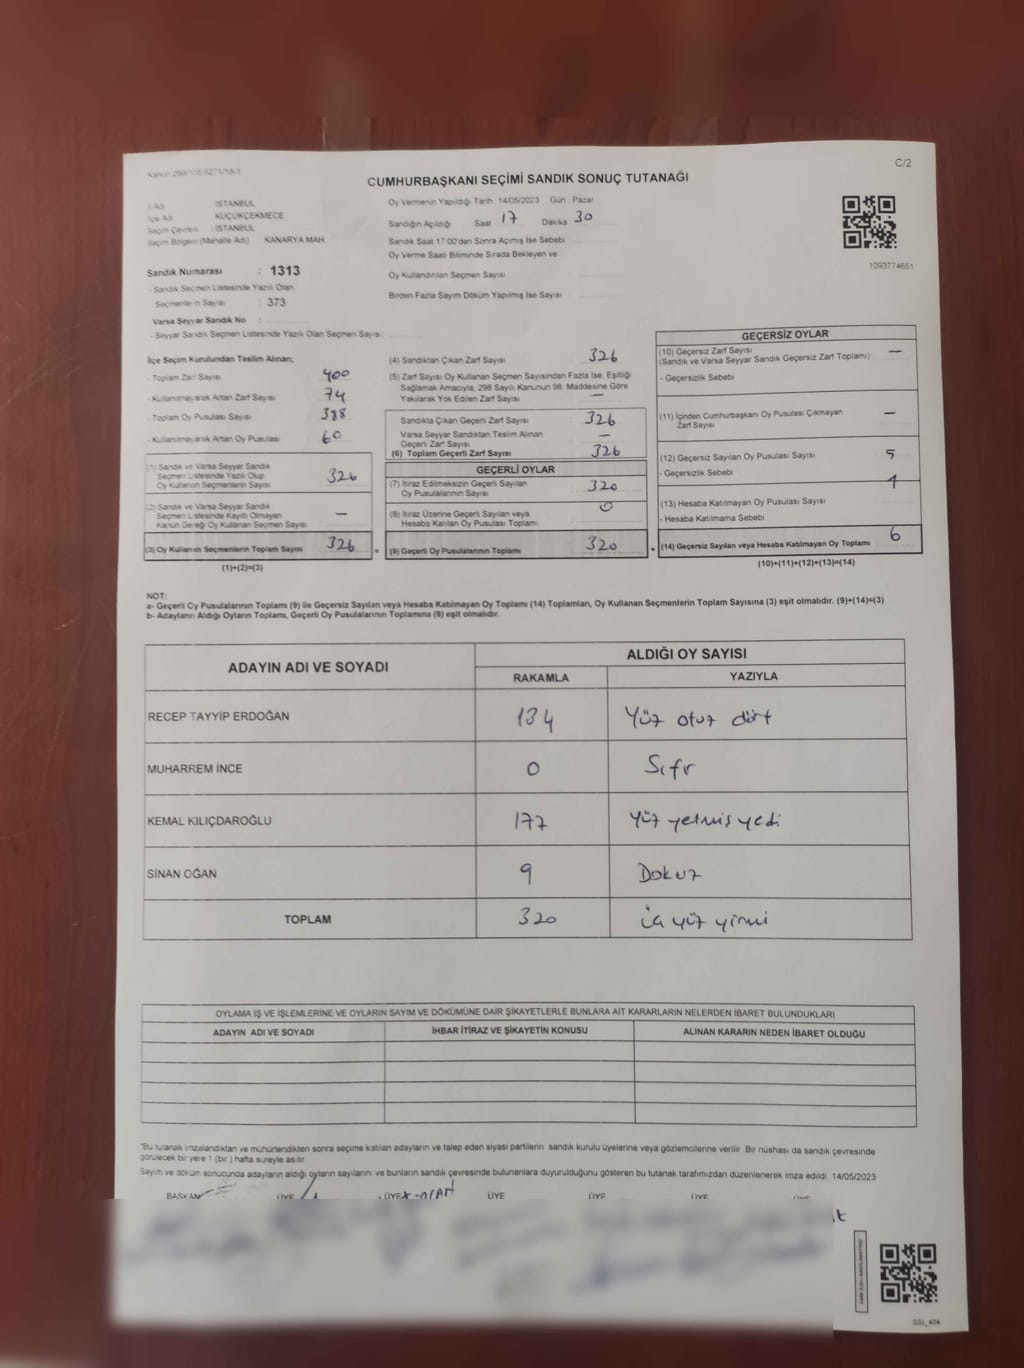 Kanun 298/105.6271/18-1
C/2
CUMHURBAŞKANI SEÇİMİ SANDIK SONUÇ TUTANAĞI
İl Adı : İSTANBUL
İlçe Adı : KÜÇÜKÇEKMECE
Seçim Çevresi : İSTANBUL
Seçim Bölgesi (Mahalle Adı) : KANARYA MAH.
Sandık Numarası : 1313
- Sandık Seçmen Listesinde Yazılı Olan
Seçmenlerin Sayısı : 373
Varsa Seyyar Sandık No :
- Seyyar Sandık Seçmen Listesinde Yazılı Olan Seçmen Sayısı:
Oy Vermenin Yapıldığı Tarih 14/05/2023 Gün : Pazar
Sandığın Açıldığı Saat 17 Dakika 30
Sandık Saat 17:00'den Sonra Açılmış İse Sebebi
Oy Verme Saati Bitiminde Sırada Bekleyen ve
Oy Kullandırılan Seçmen Sayısı
Birden Fazla Sayım Döküm Yapılmış İse Sayısı
1093774651
İlçe Seçim Kurulundan Teslim Alınan;
- Toplam Zarf Sayısı 400
- Kullanılmayarak Artan Zarf Sayısı 74
- Toplam Oy Pusulası Sayısı 388
- Kullanılmayarak Artan Oy Pusulası 60
(1) Sandık ve Varsa Seyyar Sandık
Seçmen Listesinde Yazılı Olup
Oy Kullanan Seçmenlerin Sayısı 326
(2) Sandık ve Varsa Seyyar Sandık
Seçmen Listesinde Kayıtlı Olmayan
Kanun Gereği Oy Kullanan Seçmen Sayısı —
(3) Oy Kullanan Seçmenlerin Toplam Sayısı 326 =
(1)+(2)=(3)
(4) Sandıktan Çıkan Zarf Sayısı 326
(5) Zarf Sayısı Oy Kullanan Seçmen Sayısından Fazla İse, Eşitliği
Sağlamak Amacıyla, 298 Sayılı Kanunun 98. Maddesine Göre
Yakılarak Yok Edilen Zarf Sayısı —
Sandıkta Çıkan Geçerli Zarf Sayısı 326
Varsa Seyyar Sandıktan Teslim Alınan
Geçerli Zarf Sayısı —
(6) Toplam Geçerli Zarf Sayısı 326
GEÇERLİ OYLAR
(7) İtiraz Edilmeksizin Geçerli Sayılan
Oy Pusulalarının Sayısı 320
(8) İtiraz Üzerine Geçerli Sayılan veya
Hesaba Katılan Oy Pusulası Toplamı 0
(9) Geçerli Oy Pusulalarının Toplamı 320 +
GEÇERSİZ OYLAR
(10) Geçersiz Zarf Sayısı —
(Sandık ve Varsa Seyyar Sandık Geçersiz Zarf Toplamı)
- Geçersizlik Sebebi
(11) İçinden Cumhurbaşkanı Oy Pusulası Çıkmayan —
Zarf Sayısı
(12) Geçersiz Sayılan Oy Pusulası Sayısı 5
- Geçersizlik Sebebi
1
(13) Hesaba Katılmayan Oy Pusulası Sayısı
- Hesaba Katılmama Sebebi
(14) Geçersiz Sayılan veya Hesaba Katılmayan Oy Toplamı 6
(10)+(11)+(12)+(13)=(14)
NOT:
a- Geçerli Oy Pusulalarının Toplamı (9) ile Geçersiz Sayılan veya Hesaba Katılmayan Oy Toplamı (14) Toplamları, Oy Kullanan Seçmenlerin Toplam Sayısına (3) eşit olmalıdır. (9)+(14)=(3)
b- Adayların Aldığı Oyların Toplamı, Geçerli Oy Pusulalarının Toplamına (9) eşit olmalıdır.
ADAYIN ADI VE SOYADI ALDIĞI OY SAYISI
RAKAMLA YAZIYLA
RECEP TAYYİP ERDOĞAN 134 Yüz otuz dört
MUHARREM İNCE 0 Sıfır
KEMAL KILIÇDAROĞLU 177 Yüz yetmiş yedi
SİNAN OĞAN 9 Dokuz
TOPLAM 320 üç yüz yirmi
OYLAMA İŞ VE İŞLEMLERİNE VE OYLARIN SAYIM VE DÖKÜMÜNE DAİR ŞİKAYETLERLE BUNLARA AİT KARARLARIN NELERDEN İBARET BULUNDUKLARI
ADAYIN ADI VE SOYADI İHBAR İTİRAZ VE ŞİKAYETİN KONUSU ALINAN KARARIN NEDEN İBARET OLDUĞU
*Bu tutanak imzalandıktan ve mühürlendikten sonra seçime katılan adayların ve talep eden siyasi partilerin sandık kurulu üyelerine veya gözlemcilerine verilir. Bir nüshası da sandık çevresinde
görülecek bir yere 1 (bir) hafta süreyle asılır.
Sayım ve döküm sonucunda adayların aldığı oyların sayılarını ve bunların sandık çevresinde bulunanlara duyurulduğunu gösteren bu tutanak tarafımızdan düzenlenerek imza edildi. 14/05/2023
BAŞKAN ÜYE ÜYE ÜYE ÜYE ÜYE ÜYE
SSI_404